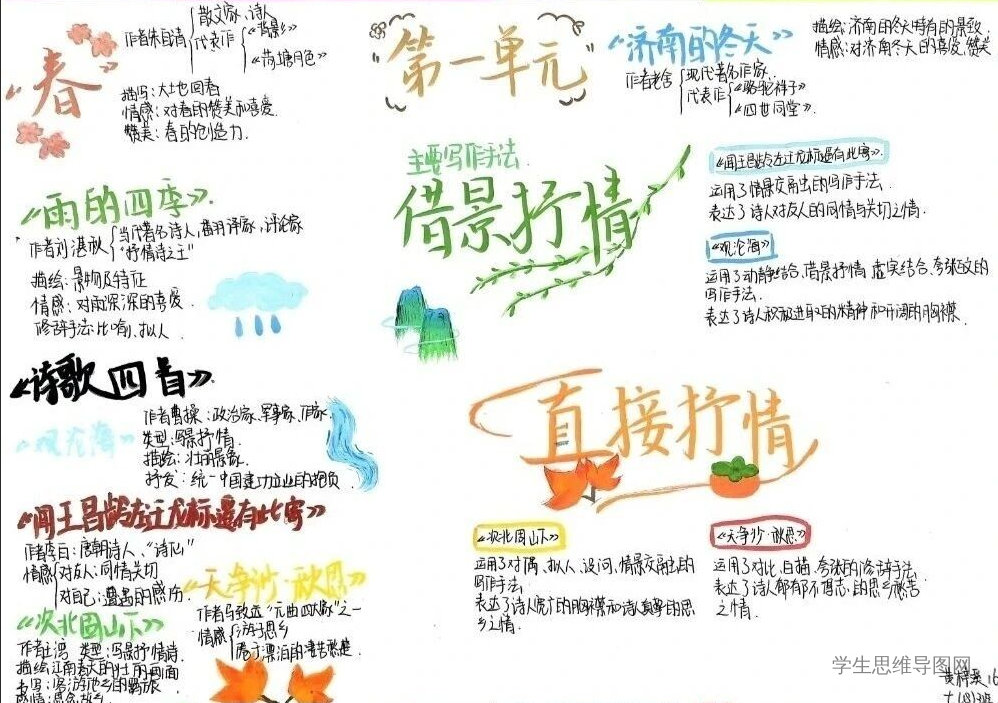 春
作者朱自清
散文家、诗人
代表作
《背影》
《荷塘月色》
描写：大地回春
情感：对春的赞美和喜爱
赞美：春的创造力.
第一单元
《济南的冬天》
作者老舍
现代著名作家.
代表作
《骆驼祥子》
《四世同堂》
描绘：济南的冬天特有的景致
情感：对济南冬天的喜爱,赞美
《雨的四季》
作者刘湛秋
当代著名诗人，翻译家，评论家
"抒情诗之王"
描绘：景物及特征
情感：对雨深深的喜爱.
修辞手法：比喻、拟人.
主要写作手法
借景抒情
《闻王昌龄左迁龙标遥有此寄》
运用了情景交融的写作手法.
表达了诗人对友人的同情与关切之情.
《观沧海》
运用了动静结合、借景抒情、虚实结合、夸张的
写作手法.
表达了诗人积极进取的精神和开阔的胸襟.
《诗歌四首》
《观沧海》
作者曹操：政治家、军事家、作家.
类型：写景抒情.
描绘：壮丽景象.
抒发：统一中国建功立业的抱负
直接抒情
《闻王昌龄左迁龙标遥有此寄》
作者李白：唐朝诗人、"诗仙"
情感
对友人：同情关切
对自己：遭遇的感伤
《天净沙·秋思》
作者马致远"元曲四大家"之一
情感
游子思乡
《次北固山下》
作者王湾 类型：写景抒情诗
描绘江南春天的壮丽画面
情感：思念故乡
《次北固山下》
运用了对偶、拟人、设问、情景交融的
写作手法.
表达了诗人宽广的胸襟和诗人真挚的思
乡之情.
《天净沙·秋思》
运用了对比、白描、夸张的修辞手法.
表达了诗人郁郁不得志的思乡愁苦
之情.
学生思维导图网